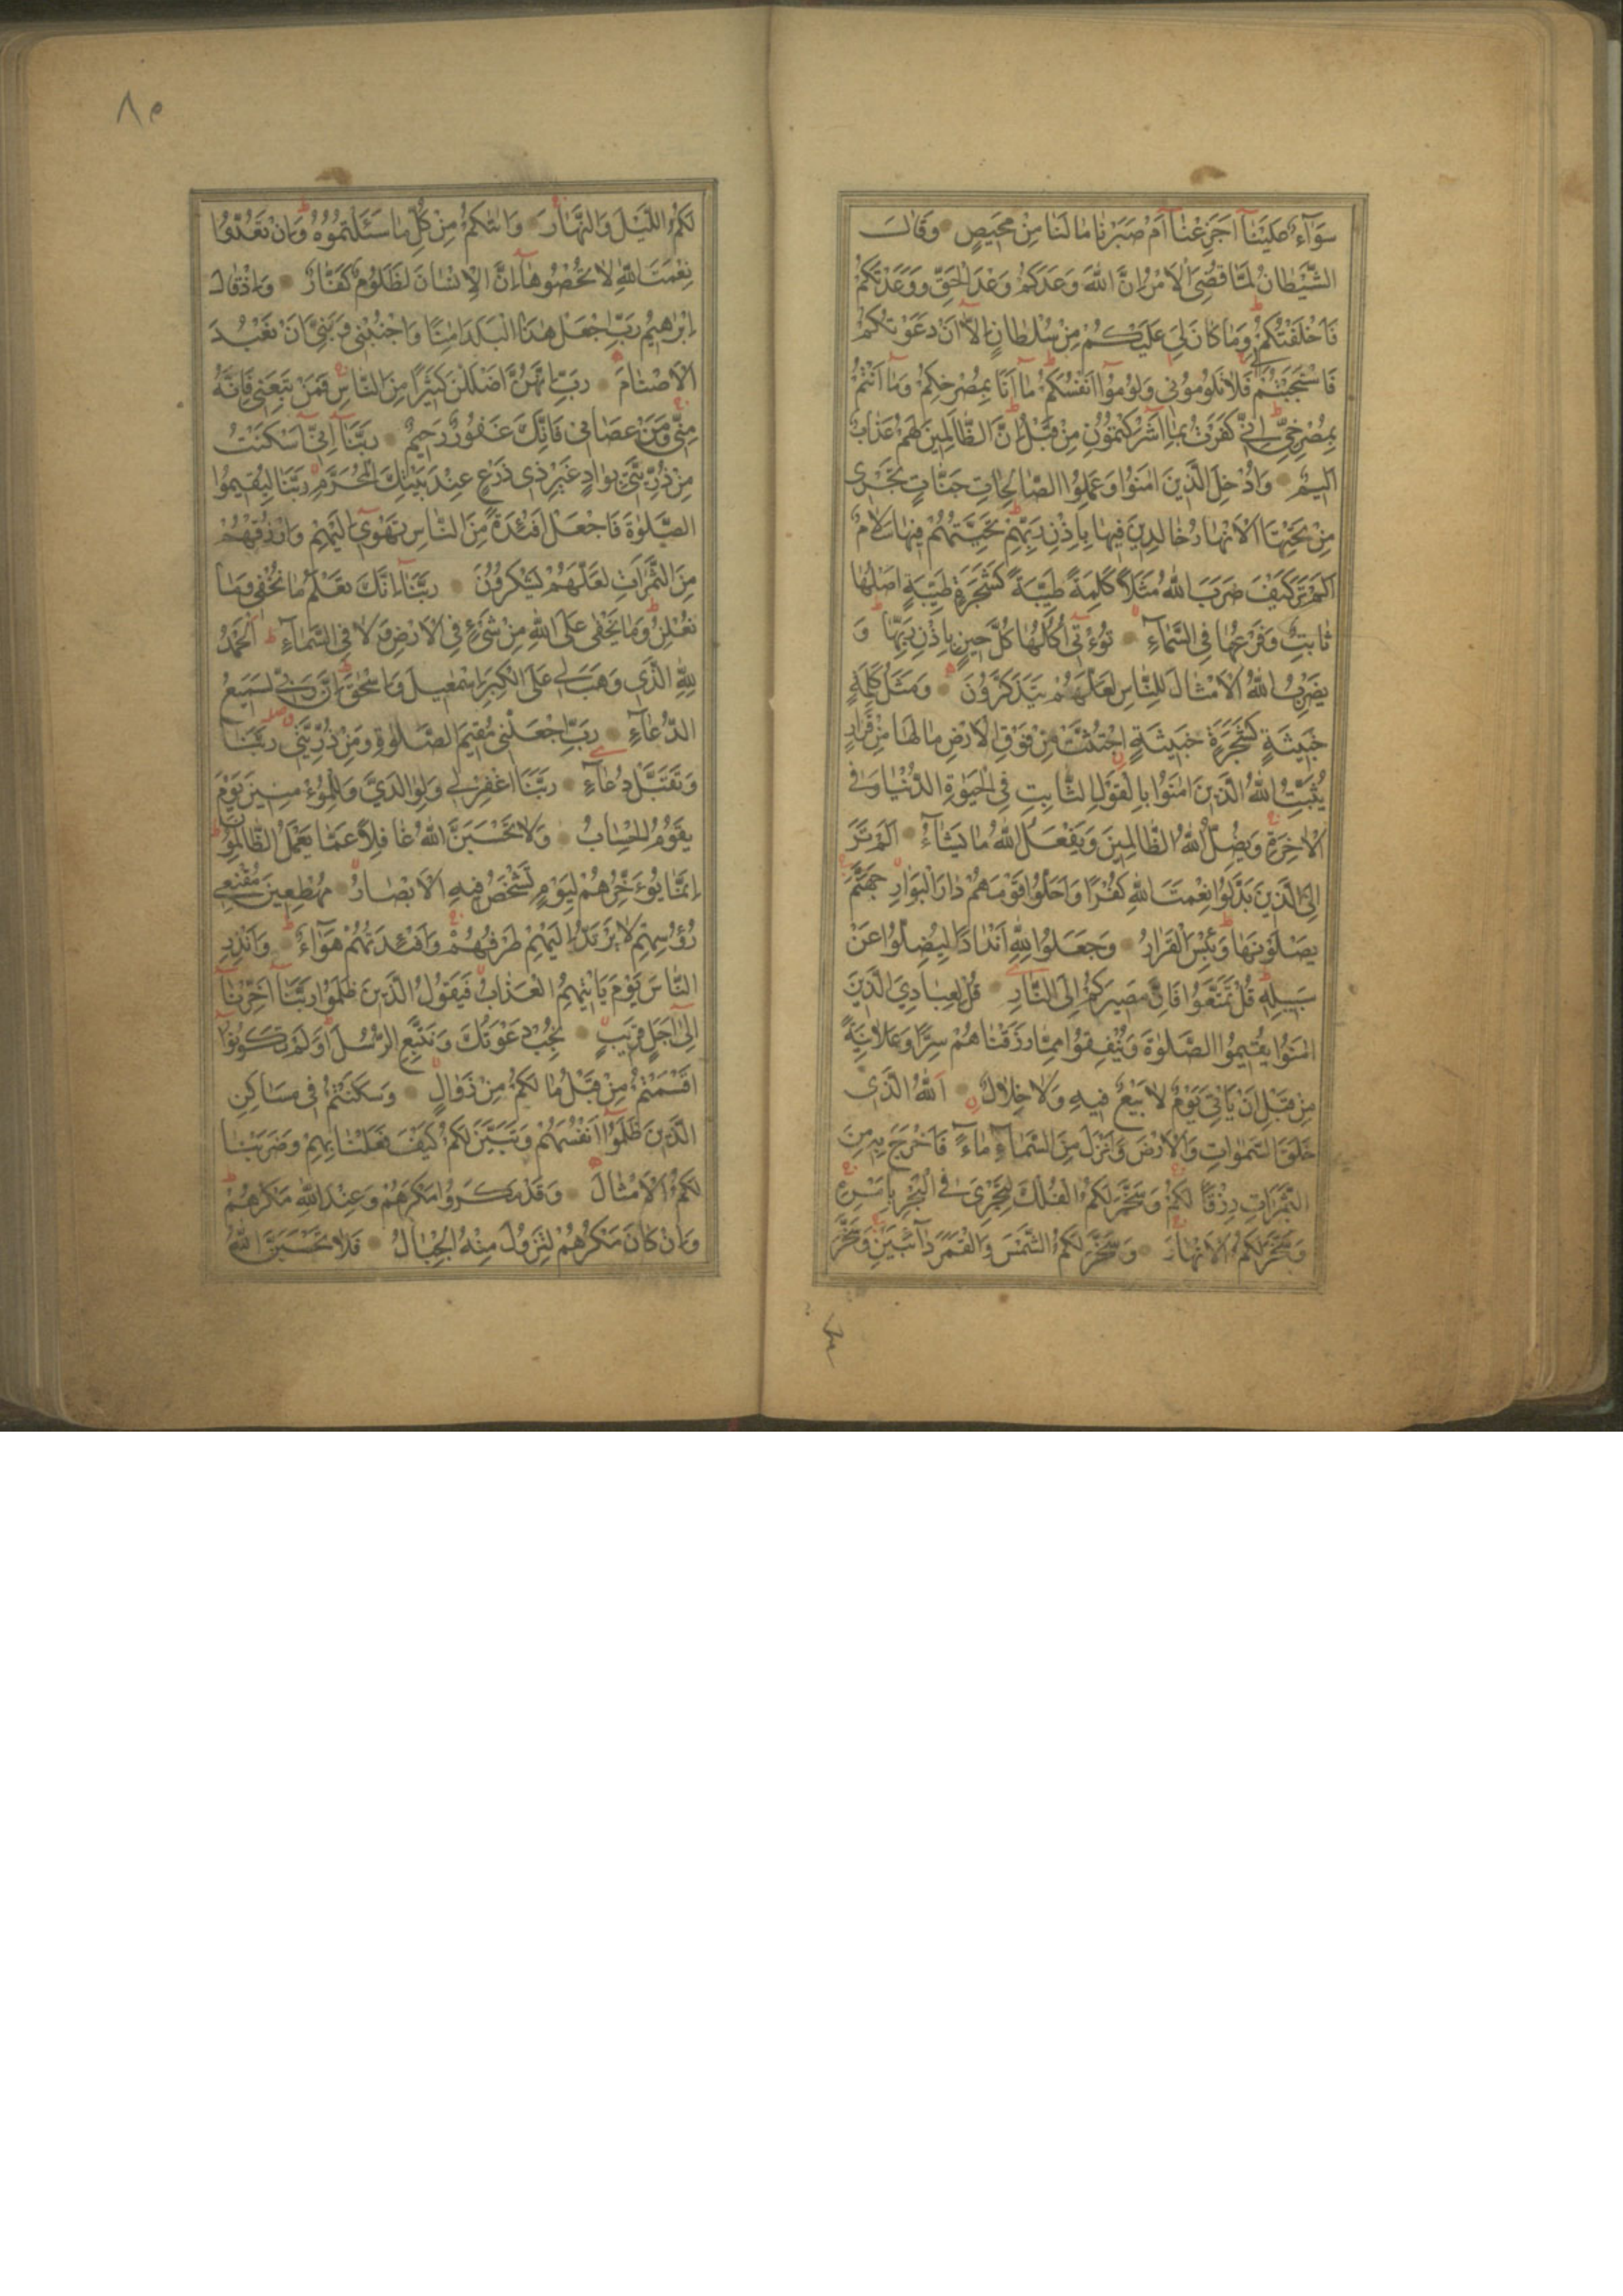 سَوَآءٌ عَلَيْنَآ اَجَزِعْنَآ اَمْ صَبَرْنَا مَا لَنَا مِنْ مَحِيصٍ وَقَالَ
الشَّيْطَانُ لَمَّا قُضِىَ الْاَمْرُ اِنَّ اللّٰهَ وَعَدَكُمْ وَعْدَ الْحَقِّ وَوَعَدْتُكُمْ
فَاَخْلَفْتُكُمْ وَمَا كَانَ لِيَ عَلَيْكُمْ مِنْ سُلْطَانٍ اِلَّآ اَنْ دَعَوْتُكُمْ
فَاسْتَجَبْتُمْ لِي فَلَا تَلُومُونِي وَلُومُوٓا اَنْفُسَكُمْ مَآ اَنَا بِمُصْرِخِكُمْ وَمَآ اَنْتُمْ
بِمُصْرِخِيَّ اِنِّي كَفَرْتُ بِمَآ اَشْرَكْتُمُونِ مِنْ قَبْلُ اِنَّ الظَّالِمِينَ لَهُمْ عَذَابٌ
اَلِيمٌ وَاُدْخِلَ الَّذِينَ اٰمَنُوا وَعَمِلُوا الصَّالِحَاتِ جَنَّاتٍ تَجْرِى
مِنْ تَحْتِهَا الْاَنْهَارُ خَالِدِينَ فِيهَا بِاِذْنِ رَبِّهِمْ تَحِيَّتُهُمْ فِيهَا سَلَامٌ
اَلَمْ تَرَ كَيْفَ ضَرَبَ اللّٰهُ مَثَلًا كَلِمَةً طَيِّبَةً كَشَجَرَةٍ طَيِّبَةٍ اَصْلُهَا
ثَابِتٌ وَفَرْعُهَا فِي السَّمَآءِ تُؤْتِٓي اُكُلَهَا كُلَّ حِينٍ بِاِذْنِ رَبِّهَا وَ
يَضْرِبُ اللّٰهُ الْاَمْثَالَ لِلنَّاسِ لَعَلَّهُمْ يَتَذَكَّرُونَ وَمَثَلُ كَلِمَةٍ
خَبِيثَةٍ كَشَجَرَةٍ خَبِيثَةٍ اجْتُثَّتْ مِنْ فَوْقِ الْاَرْضِ مَا لَهَا مِنْ قَرَارٍ
يُثَبِّتُ اللّٰهُ الَّذِينَ اٰمَنُوا بِالْقَوْلِ الثَّابِتِ فِي الْحَيٰوةِ الدُّنْيَا وَفِي
الْاٰخِرَةِ وَيُضِلُّ اللّٰهُ الظَّالِمِينَ وَيَفْعَلُ اللّٰهُ مَا يَشَآءُ اَلَمْ تَرَ
اِلَى الَّذِينَ بَدَّلُوا نِعْمَتَ اللّٰهِ كُفْرًا وَاَحَلُّوا قَوْمَهُمْ دَارَ الْبَوَارِ جَهَنَّمَ
يَصْلَوْنَهَا وَبِئْسَ الْقَرَارُ وَجَعَلُوا لِلّٰهِ اَنْدَادًا لِيُضِلُّوا عَنْ
سَبِيلِهِ قُلْ تَمَتَّعُوا فَاِنَّ مَصِيرَكُمْ اِلَى النَّارِ قُلْ لِعِبَادِيَ الَّذِينَ
اٰمَنُوا يُقِيمُوا الصَّلٰوةَ وَيُنْفِقُوا مِمَّا رَزَقْنَاهُمْ سِرًّا وَعَلَانِيَةً
مِنْ قَبْلِ اَنْ يَاْتِيَ يَوْمٌ لَا بَيْعٌ فِيهِ وَلَا خِلَالٌ اَللّٰهُ الَّذِى
خَلَقَ السَّمٰوَاتِ وَالْاَرْضَ وَاَنْزَلَ مِنَ السَّمَآءِ مَآءً فَاَخْرَجَ بِهِ مِنَ
الثَّمَرَاتِ رِزْقًا لَكُمْ وَسَخَّرَ لَكُمُ الْفُلْكَ لِتَجْرِىَ فِي الْبَحْرِ بِاَمْرِهِ
وَسَخَّرَ لَكُمُ الْاَنْهَارَ وَسَخَّرَ لَكُمُ الشَّمْسَ وَالْقَمَرَ دَآئِبَيْنِ وَسَخَّرَ
٨٥
لَكُمُ اللَّيْلَ وَالنَّهَارَ وَاٰتٰيكُمْ مِنْ كُلِّ مَا سَئَلْتُمُوهُ وَاِنْ تَعُدُّوا
نِعْمَتَ اللّٰهِ لَا تُحْصُوهَا اِنَّ الْاِنْسَانَ لَظَلُومٌ كَفَّارٌ وَاِذْ قَالَ
اِبْرٰهِيمُ رَبِّ اجْعَلْ هٰذَا الْبَلَدَ اٰمِنًا وَاجْنُبْنِي وَبَنِيَّ اَنْ نَعْبُدَ
الْاَصْنَامَ رَبِّ اِنَّهُنَّ اَضْلَلْنَ كَثِيرًا مِنَ النَّاسِ فَمَنْ تَبِعَنِي فَاِنَّهُ
مِنِّي وَمَنْ عَصَانِي فَاِنَّكَ غَفُورٌ رَحِيمٌ رَبَّنَآ اِنِّٓي اَسْكَنْتُ
مِنْ ذُرِّيَّتِي بِوَادٍ غَيْرِ ذِى زَرْعٍ عِنْدَ بَيْتِكَ الْمُحَرَّمِ رَبَّنَا لِيُقِيمُوا
الصَّلٰوةَ فَاجْعَلْ اَفْئِدَةً مِنَ النَّاسِ تَهْوِٓي اِلَيْهِمْ وَارْزُقْهُمْ
مِنَ الثَّمَرَاتِ لَعَلَّهُمْ يَشْكُرُونَ رَبَّنَآ اِنَّكَ تَعْلَمُ مَا نُخْفِي وَمَا
نُعْلِنُ وَمَا يَخْفٰى عَلَى اللّٰهِ مِنْ شَيْءٍ فِي الْاَرْضِ وَلَا فِي السَّمَآءِ اَلْحَمْدُ
لِلّٰهِ الَّذِي وَهَبَ لِي عَلَى الْكِبَرِ اِسْمٰعِيلَ وَاِسْحٰقَ اِنَّ رَبِّي لَسَمِيعُ
الدُّعَآءِ رَبِّ اجْعَلْنِي مُقِيمَ الصَّلٰوةِ وَمِنْ ذُرِّيَّتِي رَبَّنَا
وَتَقَبَّلْ دُعَآءِ رَبَّنَا اغْفِرْ لِي وَلِوَالِدَيَّ وَلِلْمُؤْمِنِينَ يَوْمَ
يَقُومُ الْحِسَابُ وَلَا تَحْسَبَنَّ اللّٰهَ غَافِلًا عَمَّا يَعْمَلُ الظَّالِمُونَ
اِنَّمَا يُؤَخِّرُهُمْ لِيَوْمٍ تَشْخَصُ فِيهِ الْاَبْصَارُ مُهْطِعِينَ مُقْنِعِي
رُؤُسِهِمْ لَا يَرْتَدُّ اِلَيْهِمْ طَرْفُهُمْ وَاَفْئِدَتُهُمْ هَوَآءٌ وَاَنْذِرِ
النَّاسَ يَوْمَ يَاْتِيهِمُ الْعَذَابُ فَيَقُولُ الَّذِينَ ظَلَمُوا رَبَّنَآ اَخِّرْنَآ
اِلٰٓى اَجَلٍ قَرِيبٍ نُجِبْ دَعْوَتَكَ وَنَتَّبِعِ الرُّسُلَ اَوَلَمْ تَكُونُوٓا
اَقْسَمْتُمْ مِنْ قَبْلُ مَا لَكُمْ مِنْ زَوَالٍ وَسَكَنْتُمْ فِي مَسَاكِنِ
الَّذِينَ ظَلَمُوٓا اَنْفُسَهُمْ وَتَبَيَّنَ لَكُمْ كَيْفَ فَعَلْنَا بِهِمْ وَضَرَبْنَا
لَكُمُ الْاَمْثَالَ وَقَدْ مَكَرُوا مَكْرَهُمْ وَعِنْدَ اللّٰهِ مَكْرُهُمْ
وَاِنْ كَانَ مَكْرُهُمْ لِتَزُولَ مِنْهُ الْجِبَالُ فَلَا تَحْسَبَنَّ اللّٰهَ